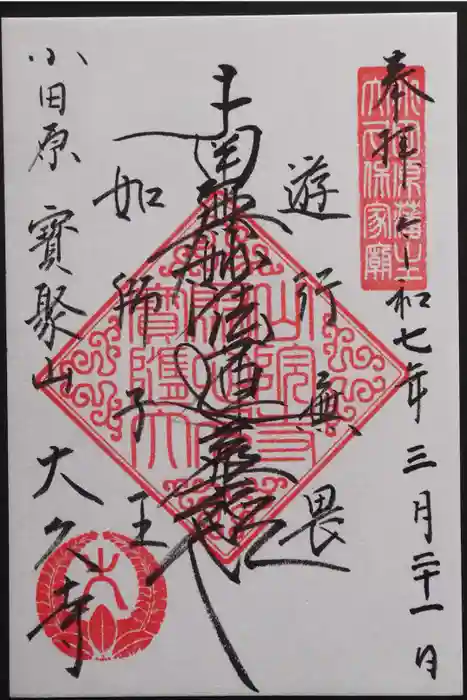 奉拝 令和七年三月二十一日
小田原藩主
大久保家廟
遊行無畏
南無妙法蓮華経
如師子王
小田原 寶聚山 大久寺
大